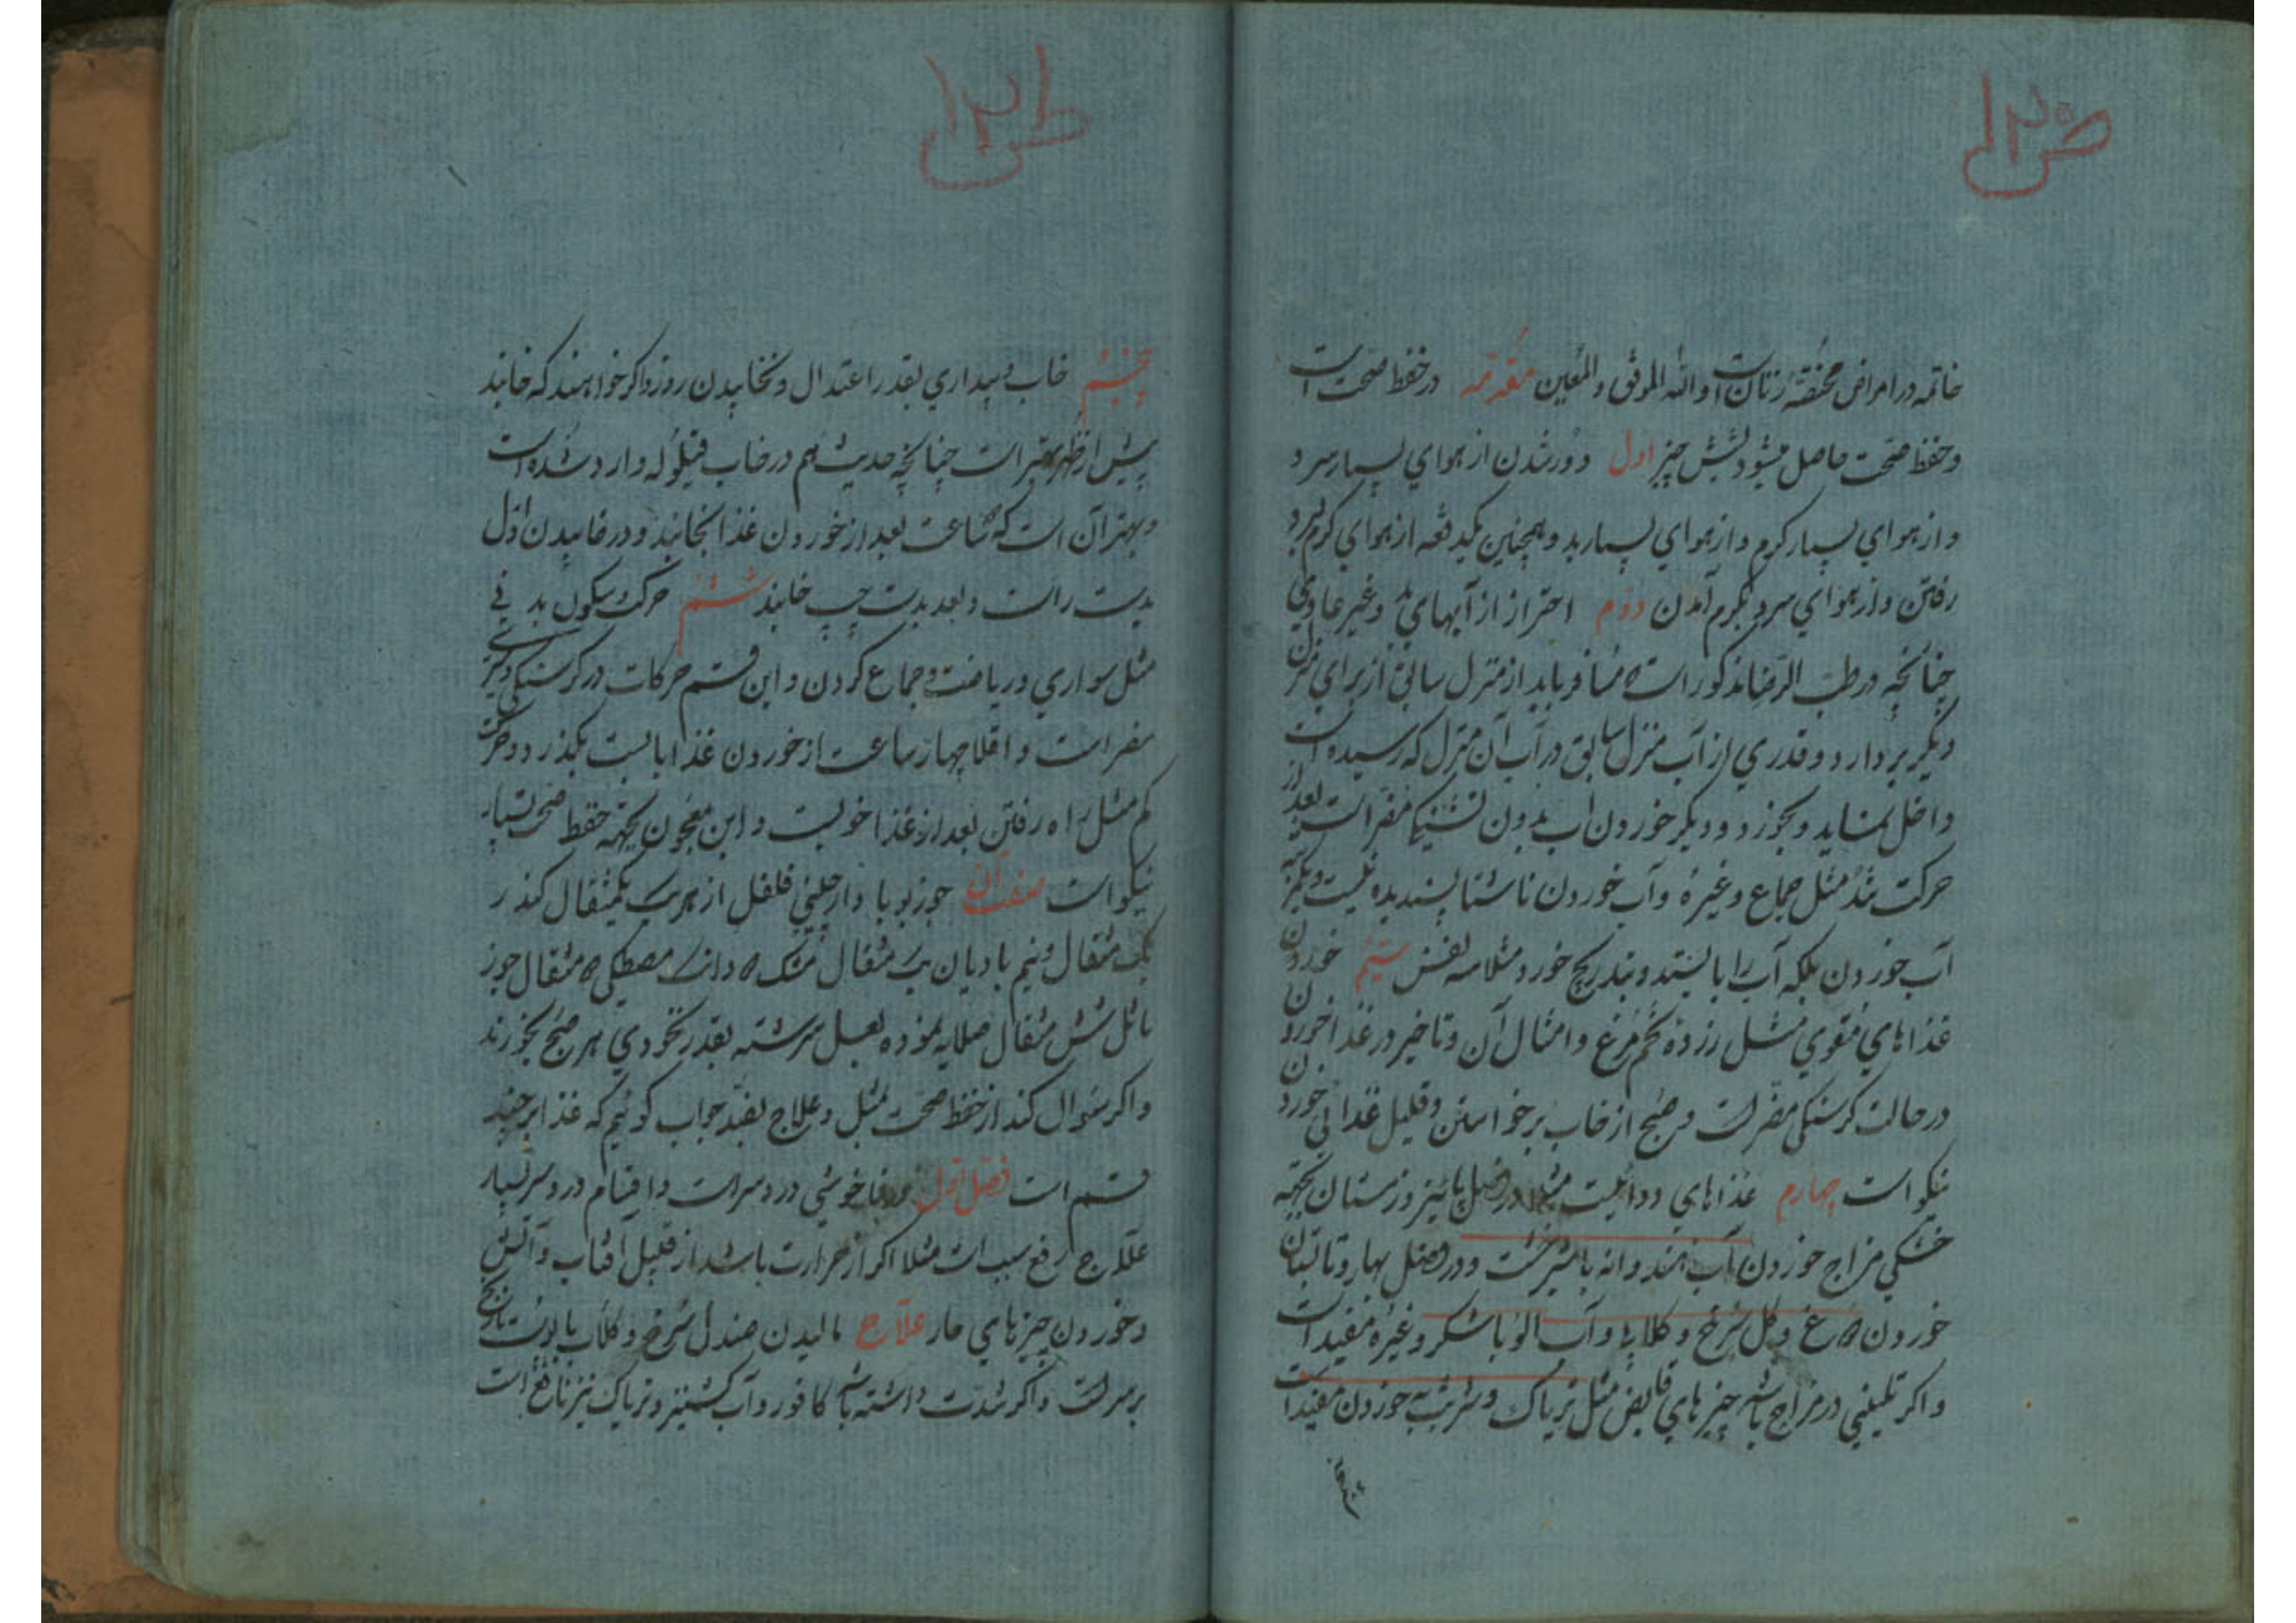 خاتمه در امراض مختصّهٔ زنان است و الله الموفق و المعین مقدمه در حفظ صحت است
و حفظ صحت حاصل میشود بشش چیز اول دور شدن از هوای بسیار سرد
و از هوای بسیار کرم و از هوای بسیار بد و همچنین یکدفعه از هوای کرم بسرد
رفتن و از هوای سرد بکرم آمدن دوم احتراز از آبهای بد و غیر عادی
چنانچه در طب الرضا مذکور است ه مسافر باید از منزل سابق از برای منزل
دیکر بردارد و قدری از آب منزل سابق در آب آن منزل که رسیده است
داخل نماید و بخورد و دیکر خوردن اب بدون تشنکی مضر است بعد از
حرکت مثل جماع و غیره و آب خوردن ناشتا پسندیده نیست
آب خوردن بلکه آب را بایستد و بتدریج خورد مثلا سه نفس سیّم خوردن
غذاهای مقوی مثل زردهٔ تخم مرغ و امثال آن و تاخیر در غذا خوردن
در حالت کرسنکی مضر است و صبح از خاب برخواستن و قلیل غذائی خوردن
نیکو است چهارم غذاهای دوائیت مثلا در فصل پائیز و زمستان بجهته
خشکی مزاج خوردن آب هندوانه با شیرخشت و در فصل بهار و تابستان
خوردن و کل سرخ و کلاب و آب الو با شکر و غیره مفید است
و اکر تلیینی در مزاج باشد چیزهای قابض مثل تریاک و شربت به خوردن مفید است
پنجم
پنجم خاب و بیداری بقدر اعتدال و نخابیدن روز و اکر خواهند که خابند
پیش از ظهر بهتر است چنانچه حدیث هم در خاب قیلوله وارد شده است
و بهتر آن است که ساعت بعد از خوردن غذا بخابند و در خابیدن اول
بدست راست و بعد بدست چپ خابند ششم حرکت و سکون بدنی
مثل سواری و ریاضت و جماع کردن و این قسم حرکات در کرسنکی و سیری
مضر است و اقلا چهار ساعت از خوردن غذا بایست بکذرد و حرکت
کم مثل راه رفتن بعد از غذا خوبست و این معجون بجهته حفظ صحت بسیار
نیکو است صفت آن جوز بویا دارچینی فلفل از هر یک یکمثقال کندر
یک مثقال و نیم بادیان یک مثقال مشک ه دانک مصطکی ه مثقال جوز
ماثل شش مثقال صلایه نموده بعسل سرشته بقدر نخودی هر صبح بخورند
و اکر سؤال کند از حفظ صحت بمثل و علاج بضد جواب کوئیم که غذا بر چند
قسم است فصل اول در ناخوشی درد سر است و اقسام درد سر بسیار
علاج رفع سبب است مثلا اکر از حرارت باشد از قبیل آفتاب و آتش
و خوردن چیزهای حار علاج مالیدن صندل سرخ و کلاب با پوست نارنج
بر سر است و اکر شدت داشته باشد کافور و آب کشنیز و تریاک نیز نافع است